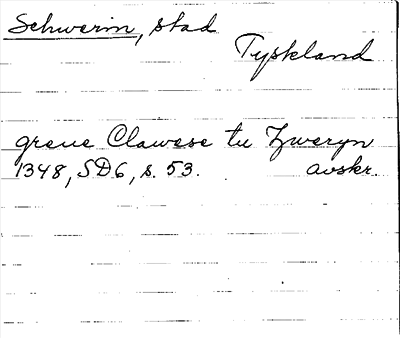 Schwerin, stad
Tyskland
greue Clawese tu Zweryn
1348, SD6, s. 53. avskr.